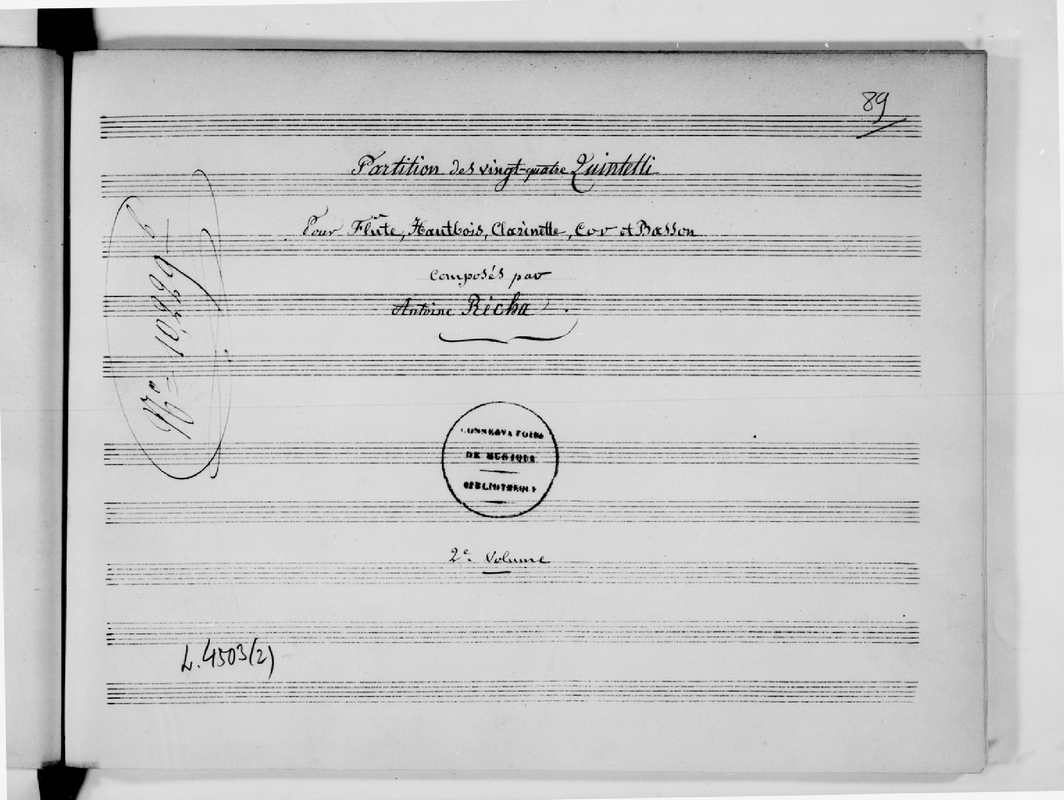 89
Partition des vingt-quatre Quintetti
Pour Flûte, Hautbois, Clarinette, Cor et Basson
Composés par
Antoine Récha
CONSERVATOIRE
DE MUSIQUE
BIBLIOTHEQUE
2e. Volume
L. 4503(2)